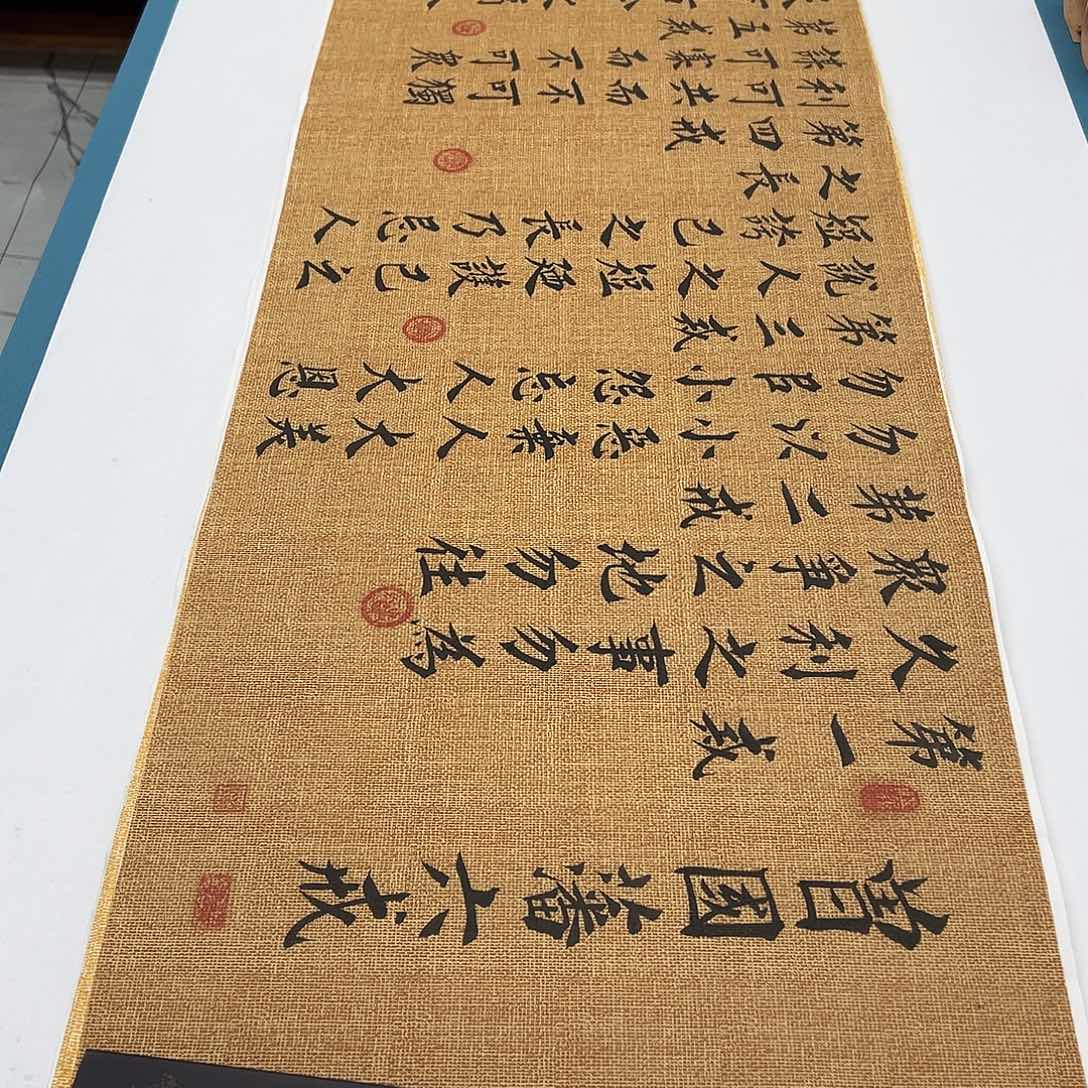 曾國藩六戒
第一戒
久利之事勿為
眾爭之地勿往
第二戒
勿以小惡棄人大美
勿㠯小怨忘人大恩
第三戒
說人之短廼護己之
短誇己之長乃忌人
之長
第四戒
利可共而不可獨
謀可寡而不可衆
第五戒